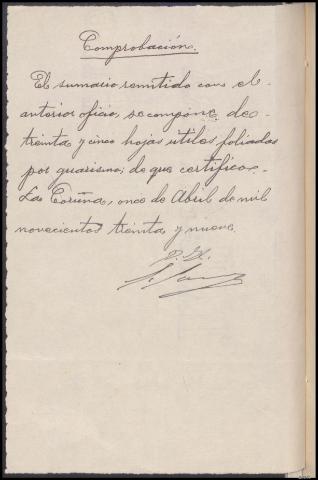 Comprobación.
El sumario remitido con el
anterior oficio, se compone de
treinta y cinco hojas utiles foliadas
por guarismo; de que certifico.
La Coruña, once de Abril de mil
novecientos treinta y nueve.